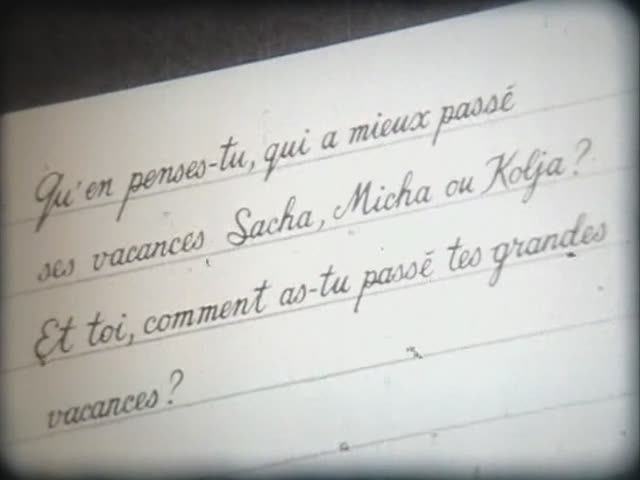 Qu'en penses-tu, qui a mieux passé
ses vacances Sacha, Micha ou Kolja?
Et toi, comment as-tu passé tes grandes
vacances?